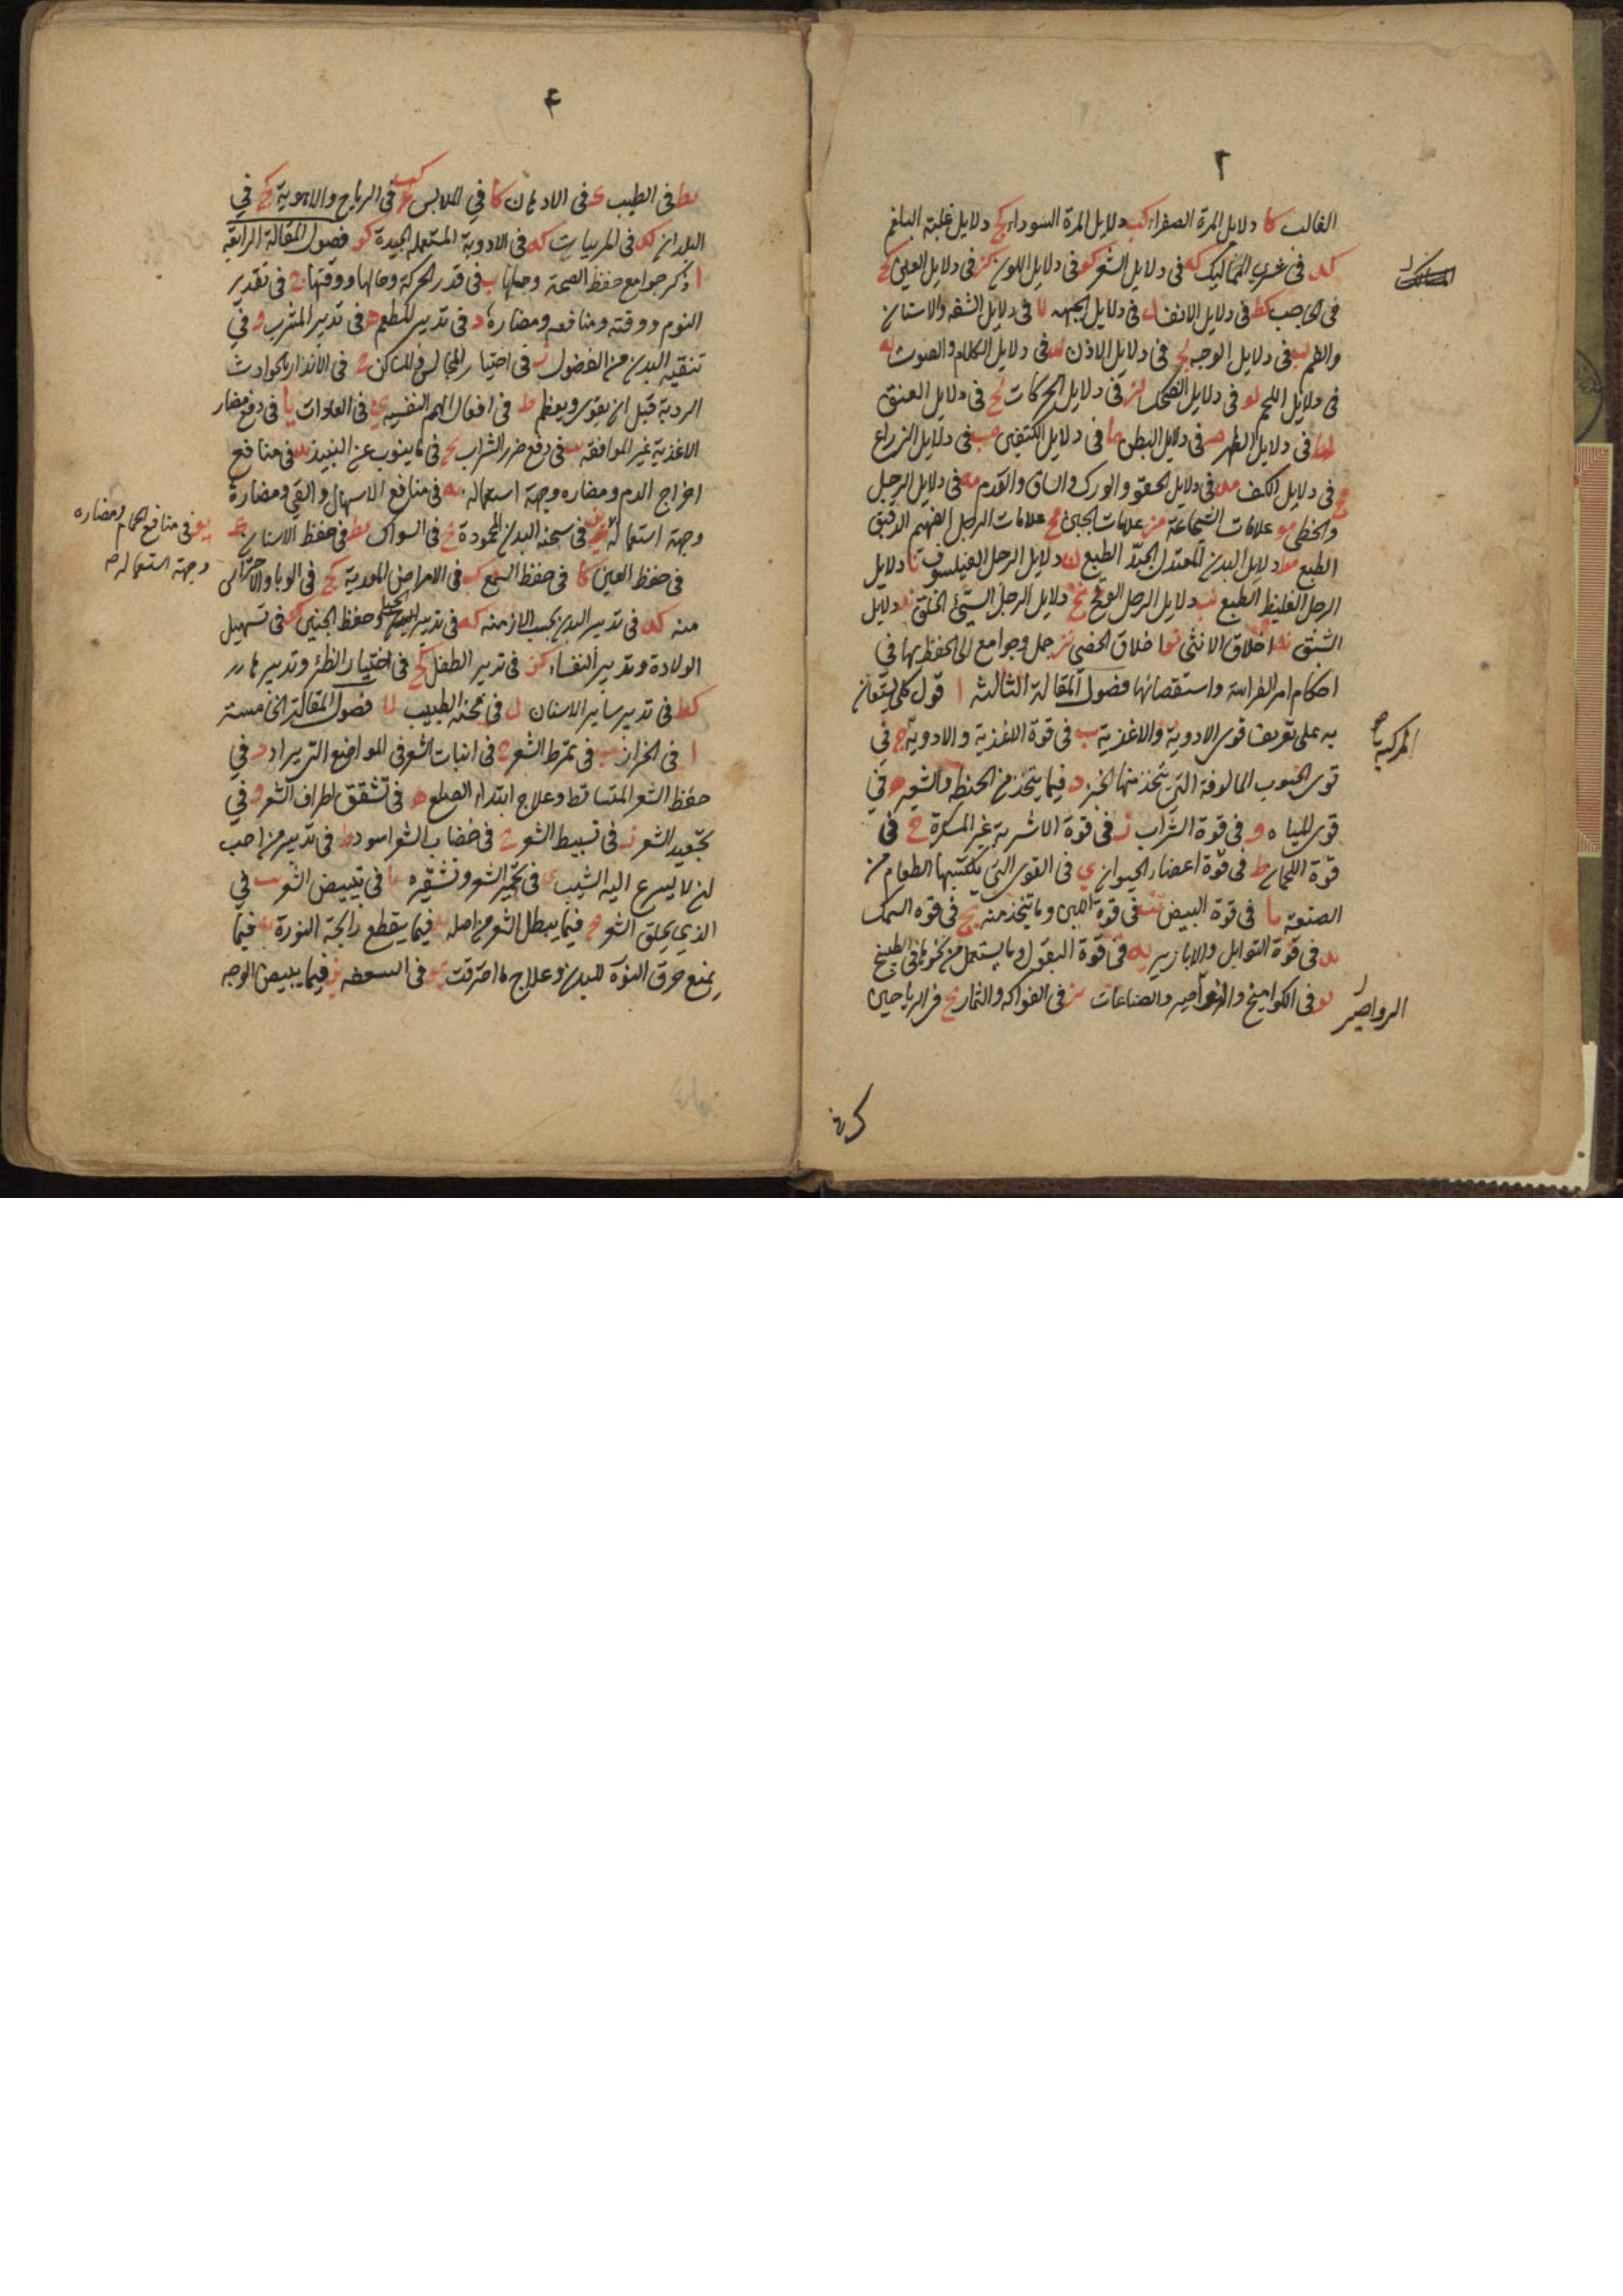 ٢
الغالب كا دلايل المرة الصفراء كب دلايل المرة السوداء كج دلايل غلبة البلغم
كد فى شرى المماليك كه فى دلايل الشعر كو فى دلايل اللون كز فى دلايل العين كح
فى الحاجب كط فى دلايل الانف ل فى دلايل الجبهه لا فى دلايل الشفه والاسنان
والفم لب فى دلايل الوجه لج فى دلايل الاذن لد فى دلايل الكلام والصوت له
فى دلايل اللحم لو فى دلايل الضحك لز فى دلايل الحركات لح فى دلايل العنق
لط فى دلايل الظهر م فى دلايل البطن ما فى دلايل الكتفين مب فى دلايل الزراع
مج فى دلايل الكف مد فى دلايل الحقو والورك والساق والقدم مه فى دلايل الرجل
والخطى مو علامات الشجاعة مز علامات الجبن مح علامات الرجل الفهيم الدقيق
الطبع مط دلايل البدن المعتدل الجيّد الطبع ن دلايل الرجل الفيلسوف نا دلايل
الرجل الغليظ الطبع نب دلايل الرجل الوقح نج دلايل الرجل السيّئ الخلق ند دلايل
الشبق نه اخلاق الانثى نو اخلاق الخصى نز جمل وجوامع الى الحفظ بها فى
احكام امر الفراسة واستقصائها فصول المقالة الثالثه ا قول كلى يستعان
المركبه صح
به على تعريف قوى الادوية والاغذية ب فى قوة الاغذية والادوية ج فى
قوى الحبوب المالوفة التى يتخذ منها الخبز د فيما يتخذ من الحنطه والشعير ه فى
قوى المياه و فى قوة الشراب ز فى قوة الاشربة غير المسكرة ح فى
قوة اللحمان ط فى قوة اعضاء الحيوان ي فى القوى التى يكتسبها الطعام من
الصنعة يا فى قوة البيض يب فى قوة اللبن وما يتخذ منه يج فى قوه السمك
يد فى قوة التوابل والابازير يه فى قوة البقول وما يستعمل من نحوها فى الطبيخ
يو فى الكواميخ والرواصير والصناعات يز فى الفواكه والثمار يح فى الرياحين
الرواصير
٤
يط فى الطيب ك فى الادهان كا في الملابس كب فى الرياح والاهوية كج في
البلدان كد فى المربيات كه فى الادوية المستعمله الجيدة كو فصول المقالة الرابعة
ا ذكر جوامع حفظ الصحة وجملها ب فى قدر الحركة وحالها ووقتها ج فى تقدير
النوم ووقته ومنافعه ومضاره د فى تدبير المطعم ه فى تدبير المشرب و في
تنقيه البدن من الفضول ز فى اختيار المجالس والمساكن ح فى الانذار بالحوادث
الردية قبل ان يقوى ويعظم ط فى افعال الهم النفسية ي فى العادات يا فى دفع مضار
الاغذية غير الموافقه يب فى دفع ضرر الشراب يج فى ما ينوب عن النبيذ يد فى منافع
اخراج الدم ومضاره وجهة استعماله يه فى منافع الاسهال والقى ومضارة
يو فى منافع الحمام ومضاره
وجهة استعماله صح
وجهة استعماله يز فى سحنه البدن المحمودة يح فى السواك يط فى حفظ الاسنان ك
فى حفظ العين كا فى حفظ السمع كب فى الامراض المعدية كج فى الوبا والاحتراس
منه كد فى تدبير البدن بحسب الازمنه كه فى تدبير الحبلى وحفظ الجنين كو فى تسهيل
الولادة وتدبير النفساء كز فى تدبير الطفل كح فى اختيار الظئر وتدبيرها
كط فى تدبير ساير الاسنان ل فى محنة الطبيب لا فصول المقالة الخامسة
ا فى الحزاز ب فى تمرط الشعر ج فى انبات الشعر فى المواضع التى يراد د في
حفظ الشعر المتساقط وعلاج ابتداء الصلع ه فى تشقق اطراف الشعر و في
تجعيد الشعر ز فى تسبيط الشعر ح فى خضاب الشعر اسود ط فى تدبير من احب
ان لا يسرع اليه الشيب ي فى تحمير الشعر وتشقيره يا فى تبييض الشعر يب في
الذي يحلق الشعر يج فيما يبطل الشعر من اصله يد فيما يقطع رايحة النورة يه فيما
يمنع حرق النورة للبدن وعلاج ما احترقت يو فى السعفه يز فيما يبيض الوجه